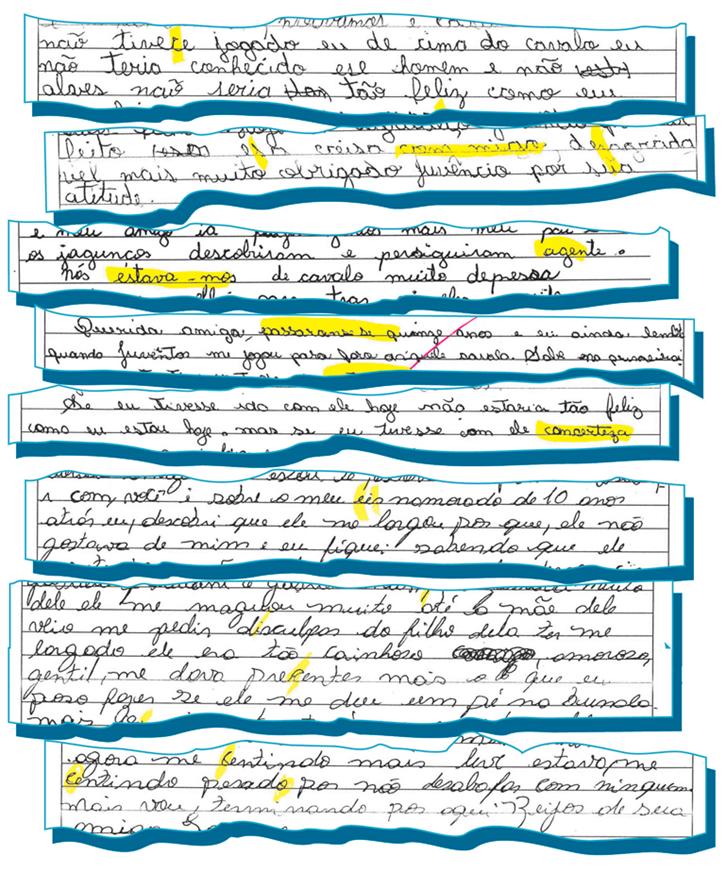 não tivece jogado eu de cima do cavalo eu
não teria conhecido ese homem e não
alves não seria tão feliz como eu
feito creiso com migo, desagrada
vel mais muito obrigado Juvêncio por sua
atitude.
e meu amigo ia mais meu pai e
os jagunços descobriram e persiguiram agente.
Nós estava-mos de cavalo muito depresa
Querida amiga, passaram-se quinze anos e eu ainda lembr
quando Juventos me jogou para fora daquele cavalo. Sabe na primeira
Se eu tivesse ido com ele hoje não estaria tão feliz
como eu estou hoje. mas se eu tivesse com ele concerteza
r com, você i sobre o meu eis namorado de 10 anos
atrós eu, descobri que ele me largou por que, ele não
gostava de mim e eu fiquei sabendo que ele
dele ele me magulou muito até a mãe dele
veio me pedir disculpas do filho dela ter me
largado ele era tão cainhoso amoroso,
gentil, me dava precentes mais o que eu
poso fazer se ele me deu um pé na bunda
mais
agora me centindo mais leve estava, me
centindo pesado por não desabafar com ninguem
mais vou, terminando por aqui Beijos de sua
amiga